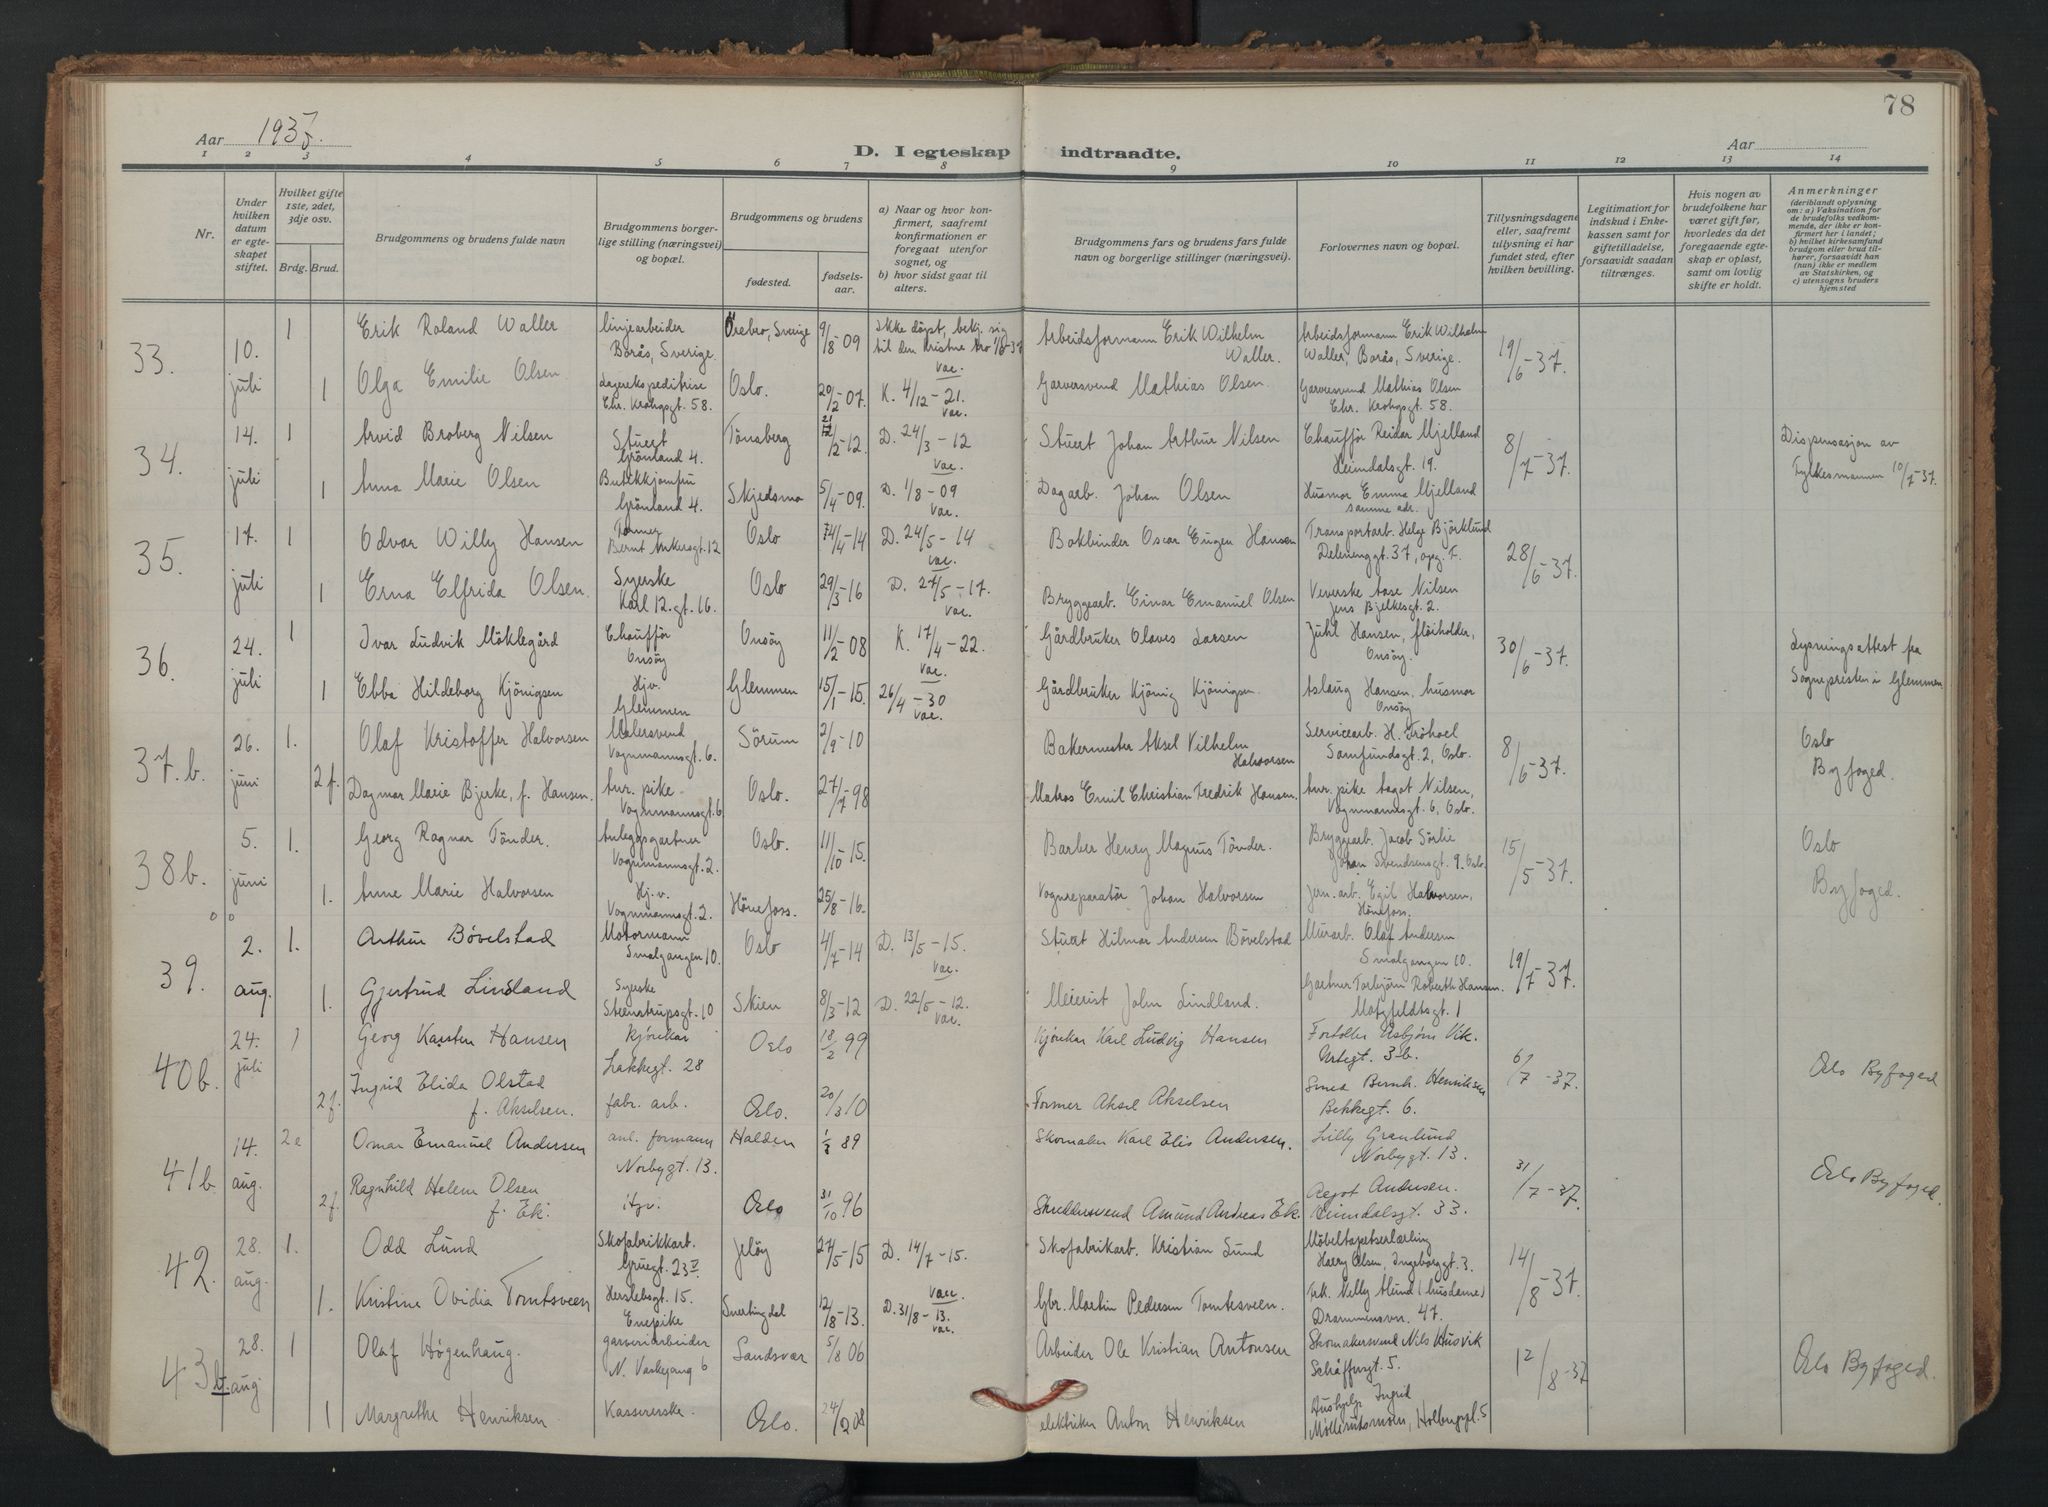 78
Aar 1937.
D. I egteskap indtraadte.
Aar
1 2 3 4 5 6 7 8 9 10 11 12 13 14
Nr.
Under hvilken datum er egteskapet stiftet.
Hvilket gifte 1ste, 2det, 3dje osv.
Brdg. Brud.
Brudgommens og brudens fulde navn
Brudgommens borgerlige stilling (næringsvei) og bopæl.
Brudgommens og brudens
fødested.
fødselsaar.
a) Naar og hvor konfirmert, saafremt konfirmationen er foregaat utenfor sognet, og
b) hvor sidst gaat til alters.
Brudgommens fars og brudens fars fulde navn og borgerlige stillinger (næringsvei).
Forlovernes navn og bopæl.
Tillysningsdagene eller, saafremt tillysning ei har fundet sted, efter hvilken bevilling.
Legitimation for indskud i Enkekassen samt for giftetilladelse, forsaavidt saadan tiltrænges.
Hvis nogen av brudefolkene har været gift før, hvorledes da det foregaaende egteskap er opløst, samt om lovlig skifte er holdt.
Anmerkninger (deriblandt oplysning om: a) Vaksination for de brudefolks vedkommende, der ikke er konfirmert her i landet; b) hvilket kirkesamfund brudgom eller brud tilhører, forsaavidt han (hun) ikke er medlem av Statskirken, og c) utensogns bruders hjemsted
33. 10. juli 1 Erik Roland Waller linjearbeider Borås, Sverige. Örebro, Sverige 9/8-09 Ikke døpt, bekj. sig til den kristne tro 1/6-37 vac. Arbeidsformann Erik Wilhelm Waller. Arbeidsformann Erik Wilhelm Waller, Borås, Sverige. 19/6-37.
1 Olga Emilie Olsen Lagerekspeditrise Chr. Krohgsgt. 58. Oslo. 20/2-07. K. 4/12-21. vac. Garversvend Mathias Olsen. Garversvend Mathias Olsen Chr. Krohgsgt. 58.
34. 14. juli 1 Arvid Broberg Nilsen Stuert Grönland 4. Tönsberg 2-12. D. 24/3-12 vac. Stuert Johan Arthur Nilsen Chauffør Reidar Mjelland Heimdalsgt. 19. 8/7-37. Dispensasjon av Fylkesmannen 10/7-37.
1 Anna Marie Olsen Butikkjomfru Grönland 4. Skjedsmo 5/4-09. D. 1/8-09 vac. Dagarb. Johan Olsen Husmor Emma Mjelland samme adr.
35. 17. juli 1 Odvar Willy Hansen Former Bernt Ankersgt. 12 Oslo 4-14 D. 24/5-14 vac. Bokbinder Oscar Eugen Hansen Transportarb. Helge Björklund Delenenggt. 37, opg. F. 28/6-37.
1 Erna Elfrida Olsen. Syerske Karl 12. gt. 16. Oslo 29/3-16 D. 27/5-17. vac. Bryggearb. Einar Emanuel Olsen Veverske Aase Nilsen Jens Bjelkesgt. 2.
36. 24. juli 1 Ivar Ludvik Möklegård Chauffør Onsöy Onsöy 11/2-08 K. 17/4-22. vac. Gårdbruker Olaves Larsen Juhl Hansen, fløiholder, Onsöy. 30/6-37. Lysningsattest fra Sognepresten i Glemmen
1 Ebba Hildeborg Kjönigsen Hjv. Glemmen Glemmen 15/1-15. 26/4-30 vac. Gårdbruker Kjönig Kjönigsen. Aslaug Hansen, husmor Onsöy
37.b. 26. juni 1. Olaf Kristoffer Halvorsen Malersvend Vognmannsgt. 6. Sörum 2/9-10 Bakermester Aksel Vilhelm Halvorsen Servicearb. H. Samfundsgt. 2, Oslo. 8/6-37. Oslo Byfoged.
2 f. Dagmar Marie Bjerke, f. Hansen. Anv. pike Vognmannsgt. 6 Oslo. 27/7-98 Matros Emil Christian Fredrik Hansen. Anv. pike Aagot Nilsen, Vognmannsgt. 6, Oslo.
38b. 5. juni 1. Georg Ragnar Tönder. Anleggsgartner Vognmannsgt. 2. Oslo. 11/10-15. Barber Henry Magnus Tönder. Bryggearb. Jacob Sörlie Johan Svendsensgt. 9. Oslo. 15/5-37. Oslo Byfoged.
1. Anne Marie Halvorsen Hj.v. Vognmannsgt. 2. Hönefoss. 25/8-16. Vognreparatør Johan Halvorsen Jern. arb. Egil Halvorsen, Hönefoss.
39. 2. aug. 1. Arthur Bövelstad Motormann Smalgangen 10. Oslo 4/7-14 D. 13/5-15. vac. Stuert Hilmar Andersen Bövelstad Murarb. Olaf Andersen Smalgangen 10. 19/7-37.
1. Gjertrud Lindland Syerske Steenstrupsgt. 10 Skien 8/3-12 D. 22/5-12. vac. Meierist John Lindland. Gartner Torbjörn Roberth Hansen. Motzfeldtsgt. 1
40b. 24. juli 1 Georg Karsten Hansen kjörekar Lakkegt. 28 Oslo 18/2 99 Kjörekar Karl Ludvig Hansen Fortoller Asbjörn Vik. Urtegt. 3-b. 6/7-37. Oslo Byfoged
2 f. Ingrid Elida Olstad f. Akselsen. fabr. arb. Oslo. 20/3 10 Former Aksel Akselsen Smed Bernh. Henriksen Bekkegt. 6.
41b 14. aug. 2e Omar Emanuel Andersen anl. formann Norbygt. 13. Halden 89 Skomaker Karl Elis Andersen. Lilly Granlund Norbygt. 13. 31/7-37. Oslo Byfoged.
2 f. Ragnhild Helene Olsen f. Ek. Hjv. Oslo 31/10 96 Skreddersvend Amund Andreas Ek. Aagot Andersen. Heimdalsgt. 33.
42. 28. aug. 1. Odd Lund Skofabrikkarb. Gruegt. 23 V. Jelöy 27/5-15 D. 14/7-15. vac. Skofabrikarb. Kristian Lund Möbeltapetserlærling Harry Olsen, Ingeborggt. 3. 14/8-37.
1. Kristine Ovidia Tomtsveen Herslebsgt. 15. Enepike Snertingdal 12/8-13. D. 31/8-13. vac. Gbr. Martin Pedersen Tomtesveen. Frk. Nelly (husdame) Drammensvn. 47.
43b. 28. aug. 1 Olaf Högenhaug. garveriarbeider N. Vaskegang 6 Sandsvær 5/8 06 Arbeider Ole Kristian Antonsen Skomakersvend Nils Husvik Schäffersgt. 5. 12/8-37 Oslo Byfoged.
1 Margrethe Henriksen Kassererske. Oslo. 24/2 08 elektriker Anton Henriksen Aushjelp Ingrid Holbergspl. 5